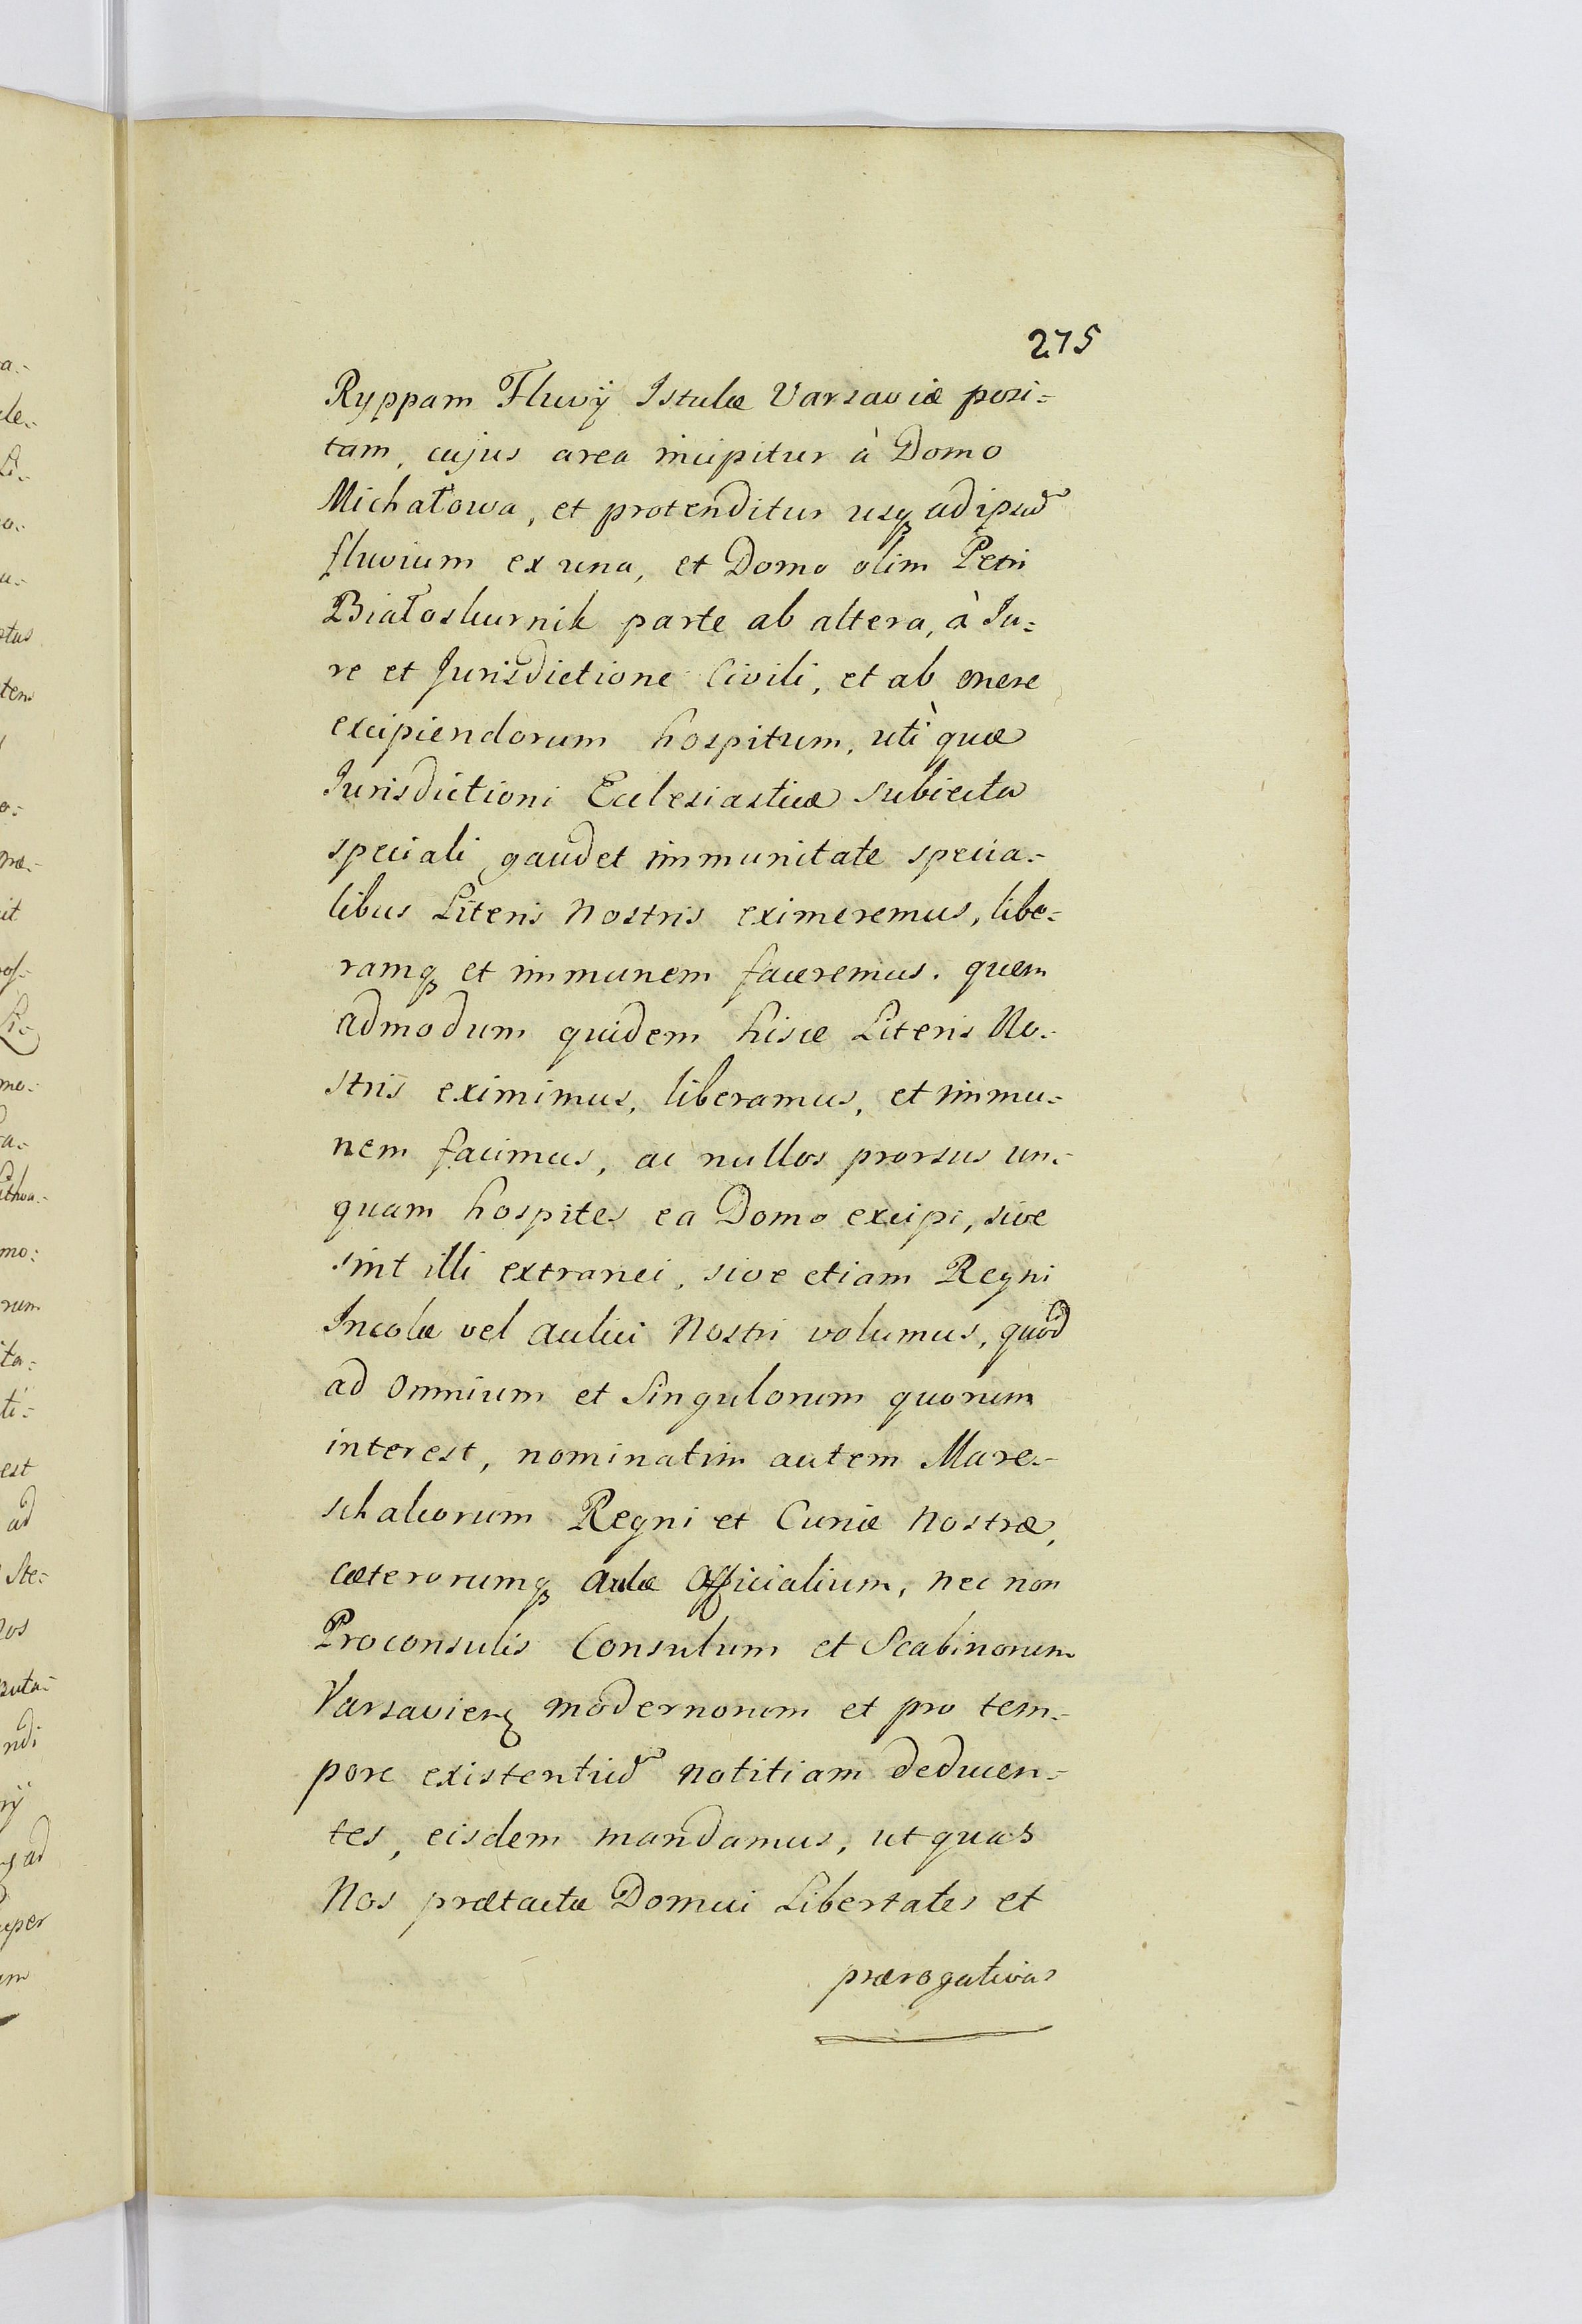 275
Ryppam Fluvÿ Istulæ Varsaviæ posi=
tam, cujus area incipitur à Domo
Michałowa, et protenditur usq́ ad ipsud̃
fluvium ex una, et Domo olim Petri
Białoskurnik parte ab altera, à Ju=
re et Jurisdictione Civili, et ab onere
excipiendorum hospitum, utì quæ
Jurisdictioni Ecclesiasticæ subiecta
speciali gaudet immunitate specia=
libus Literis Nostris eximeremus, libe=
ramq́ et immunem faceremus. quem
admodum quidem hisce Literis No=
stris eximimus, liberamus, et immu=
nem facimus, ac nullos prorsus un=
quam hospites ea Domo excipi, sive
sint illi extranei, sive etiam Regni
Incolæ vel aulici Nostri volumus, quod
ad omnium et Singulorum quorum
interest, nominatim autem Mare=
schalcorum Regni et Curiæ Nostræ,
cæterorumq́ aulæ Officialium, nec non
Proconsulis Consulum et Scabinorum
Varsavien̄ modernorum et pro tem=
pore existentiũ notitiam deducen=
tes, eisdem mandamus, ut quas
Nos prætactæ Domui Libertates et
prærogativas